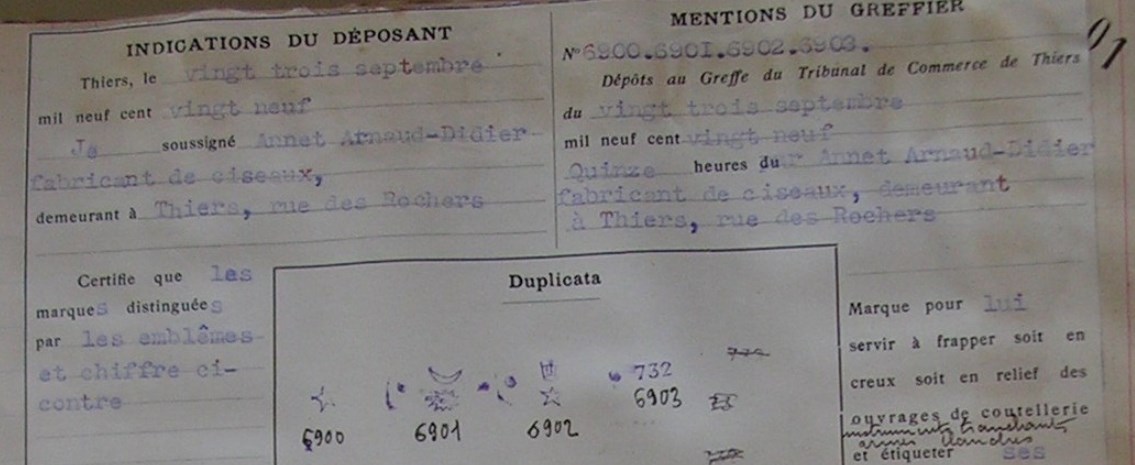 INDICATIONS DU DÉPOSANT
Thiers, le vingt trois septembre
mil neuf cent vingt neuf
Je soussigné Annet Arnaud-Didier
fabricant de ciseaux,
demeurant à Thiers, rue des Rochers
MENTIONS DU GREFFIER
N° 6900.6901.6902.6903.
Dépôts au Greffe du Tribunal de Commerce de Thiers
du vingt trois septembre
mil neuf cent vingt neuf
Quinze heures du r Annet Arnaud-Didier
fabricant de ciseaux, demeurant
à Thiers, rue des Rochers
Certifie que les
marques distinguées
par les emblêmes
et chiffre ci-
contre
Duplicata
732
6900 6901 6902 6903
Marque pour lui
servir à frapper soit en
creux soit en relief des
ouvrages de coutellerie
instruments tranchants
armes blanches
et étiqueter ses